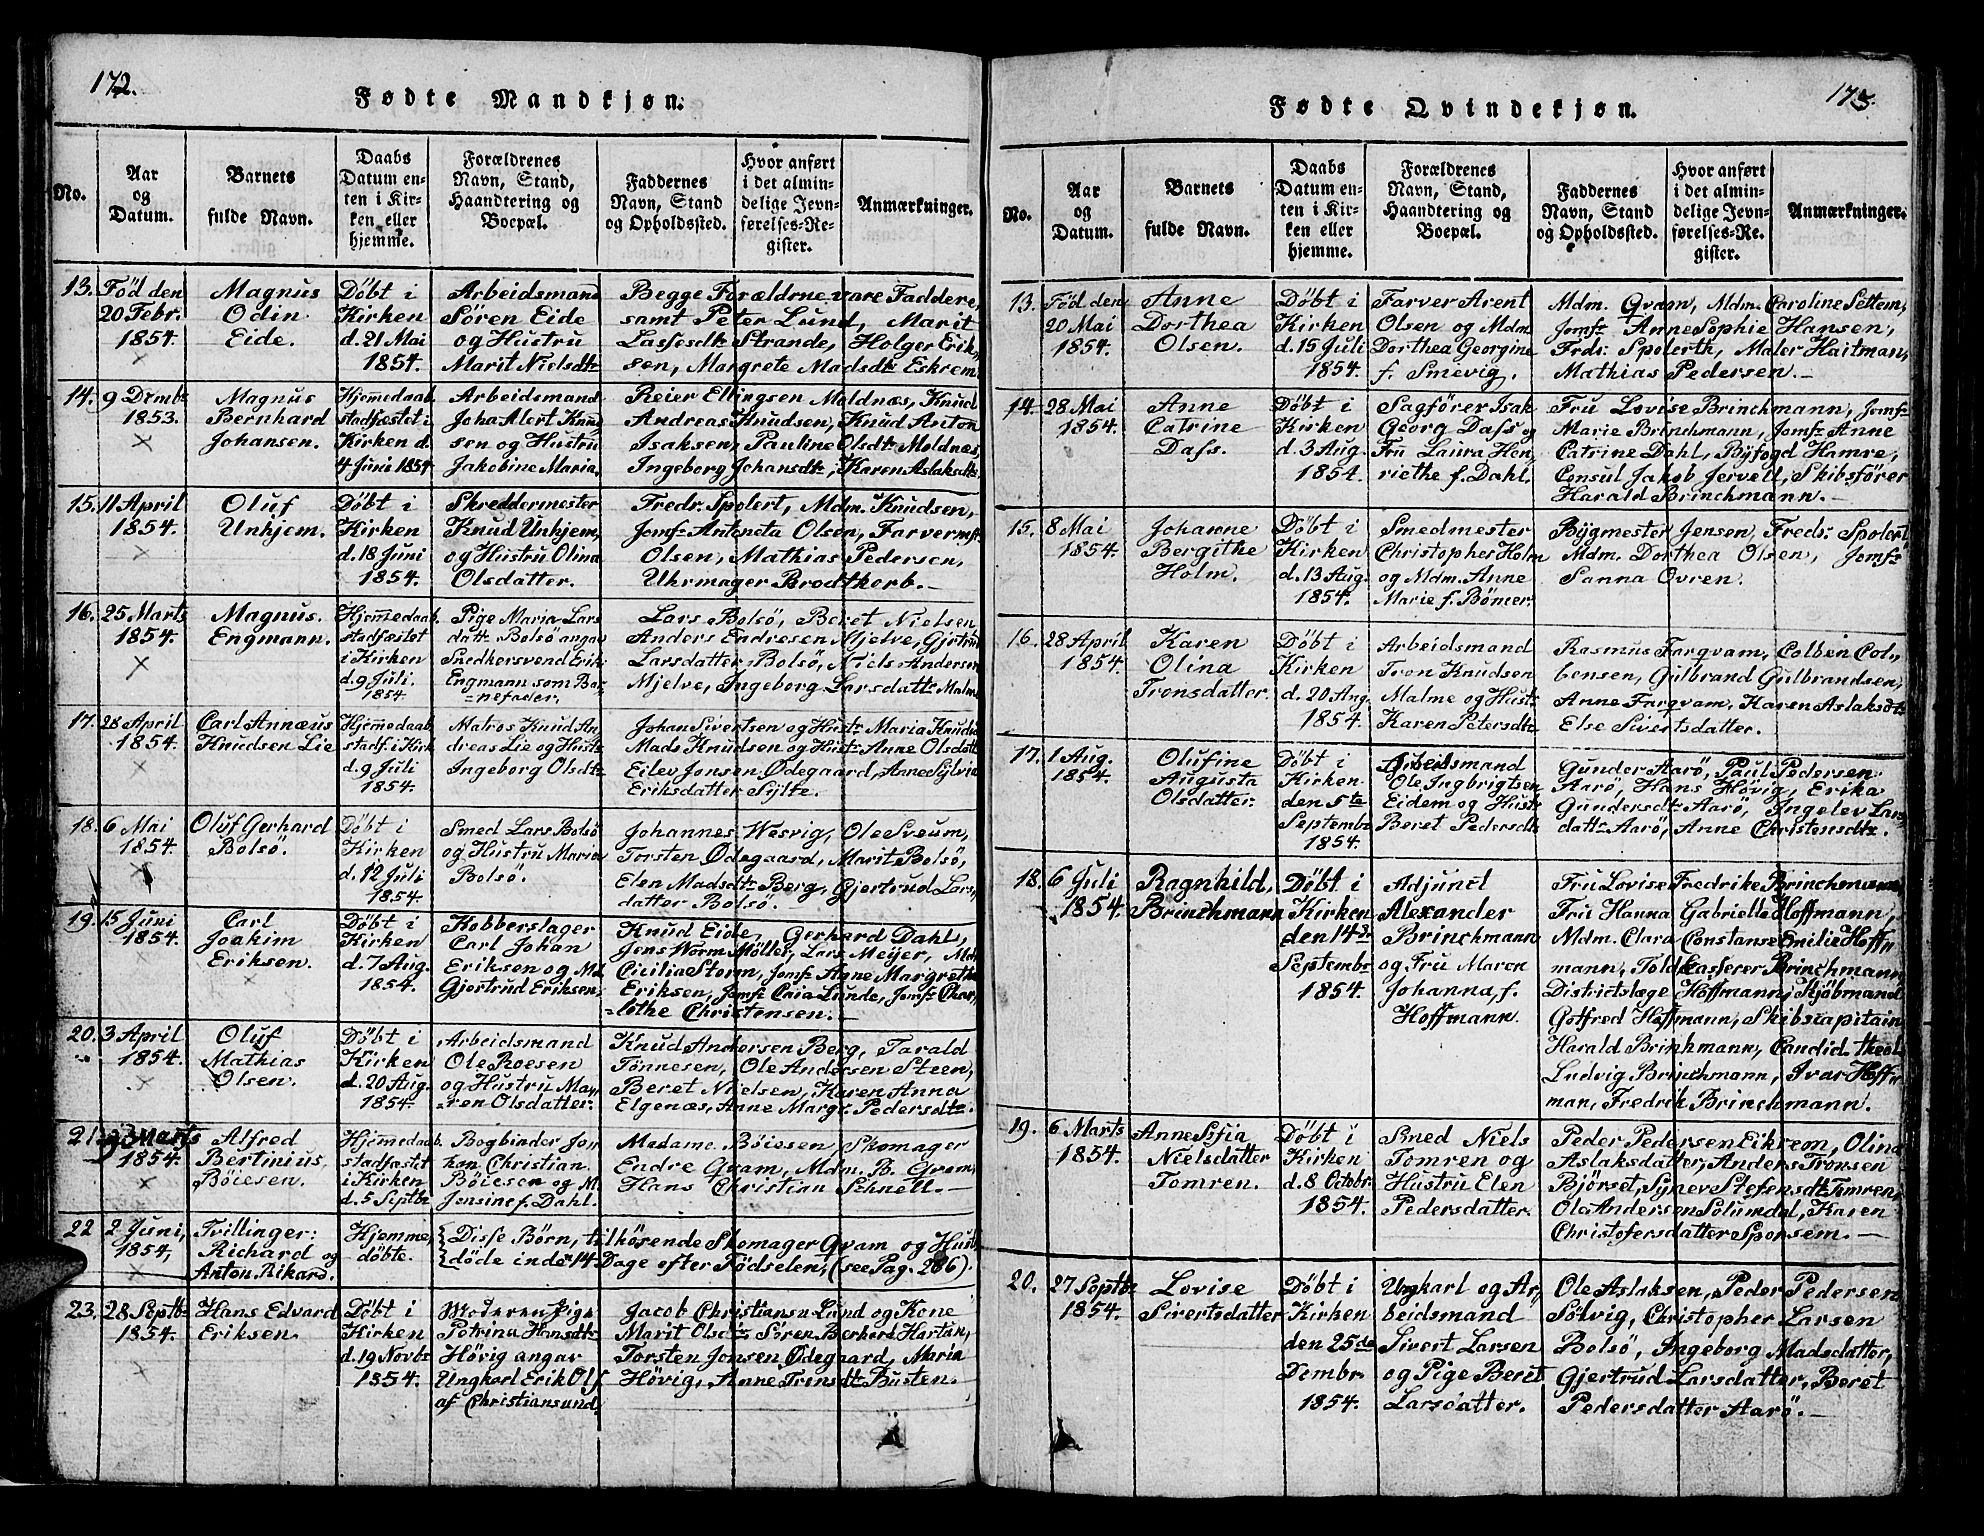 172.
Fødte Mandkjøn.
No.
Aar
og
Datum.
Barnets
fulde Navn.
Daabs
Datum en-
ten i Kir-
ken eller
hjemme.
Forældrenes
Navn, Stand,
Haandtering og
Boepæl.
Faddernes
Navn, Stand
og Opholdssted.
Hvor anført
i det almin-
delige Jevn-
førelses-Re-
gister.
Anmærkninger.
13.
Fød den
20 Febr.
1854.
Magnus
Odin
Eide.
Döbt i
Kirken
d. 21 Mai
1854.
Arbeidsmand
Sören Eide
og Hustru
Marit Nielsdtr
Begge Forældrne vare Faddere,
samt Peter Lund, Marit
Lassesdtr Strande, Holger Erik-
sen, Margrete Madsdtr Eskrem.
14.
9 Dembr
1853.
Magnus
Bernhard
Johansen.
Hjemmedaab
stadfæstet i
Kirken d.
4 Juni 1854
Arbeidsmand
Joha Alert Knud
sen og Hustru
Jakobine Maria.
Reier Ellingsen Moldnæs, Knud
Andreas Knudsen, Knud Anton
Isaksen, Pauline Olsdtr Moldnæs,
Ingeborg Johansdtr, Karen Aslaksdtr
15.
11 April
1854.
Oluf
Unhjem.
Döbt i
Kirken
d. 18 Juni
1854.
Skreddermester
Knud Unhjem
og Hustru Olina
Olsdatter.
Fredr. Spolert, Mdm. Knudsen,
Jomfr Antoneta Olsen, Farvermst
Olsen, Mathias Pedersen,
Uhrmager Brodtkorb.—
16.
25 Marts
1854.
Magnus.
Engmann.
Hjemmedaab.
stadfæstet
i Kirken
d. 9 Juli.
1854.
Pige Maria Lars
datt. Bolsö angav
Snedkersvend Erik
Engmann som Bar
nefader.
Lars Bolsö, Beret Nielsen,
Anders Endresen Mjelve, Gjertrud
Larsdatter Bolsö, Niels Andersen
Mjelve, Ingeborg Larsdatt. Malme
17.
28 April
1854.
Carl Annæus
Knudsen Lie
Hjemmedaab
stadf. i Kirk
d. 9 Juli
1854.
Matros Knud An
dreas Lie og Hustr.
Ingeborg Olsdtr
Johan Sivertsen og Hustr Maria Knuds
Mads Knudsen og Hustr Anne Olsdatt
Eilev Jonsen Ødegaard, Anne Sylvia
Eriksdatter Sylte.
18.
6 Mai
1854.
Oluf Gerhard
Bolsö.
Döbt i
Kirken
d. 12 Juli
1854.
Smed Lars Bolsö
og Hustru Maria
Bolsö.
Johannes Wesvig, Ole Sveum,
Torsten Ødegaard, Marit Bolsö,
Elen Madsdtr Berg, Gjertrud Lars,
datter Bolsö.
19.
15 Juni
1854.
Carl
Joakim
Eriksen.
Döbt i
Kirken
d. 7 Aug.
1854.
Kobberslager
Carl Johan
Eriksen og Md
Gjertrud Eriksen,
Knud Eide, Gerhard Dahl,
Jens Worm Möller, Lars Meyer, Md.
Cicilia Storm, Jomfr Anne Margrethe
Eriksen, Jomfr Caia Lunde, Jomfr Char,
lothe Christensen.—
20.
3 April
1854.
Oluf
Mathias
Olsen.
Döbt i
Kirken
d. 20 Aug.
1854.
Arbeidsmand
Ole Roesen
og Hustru Ma,
ren Olsdatter.
Knud Andersen Berg, Tarald
Tönnesen, Ole Andersen Steen,
Beret Nielsen, Karen Anna
Elgenæs, Anne Margr. Pedersdtr.
21.
Marts
1854.
Alfred
Bertinius
Böiesen.
Hjemmedaab.
stadfæstet
i Kirken
d. 5 Septbr
Bogbinder Jo,
han Christian
Böiesen og M.
Jensine f. Dahl.
Madame Böiesen, Skomager
Endre Qvam, Mdm. B. Qvam,
Hans Christian Schnell.—
22
2 Juni,
1854,
Tvillinger:
Richard og
Anton Rikard.
Hjemme,
döbte.
Disse Börn, tilhörende Skomager Qvam og Hust,
döde inden 14 Dage efter Födselen, (see Pag. 286).
23.
28 Septbr
1854.
Hans Edvard
Eriksen.
Döbt i
Kirken
d. 19 Novbr
1854.
Moderen Pige
Petrina Hansdtr
Hövig angav
Ungkarl Erik Ols
af Christiansund.
Jacob Christiansn Lund og Kone
Marit Olsdtr Sören Berherd Hartan,
Torsten Jonsen Ødegaard, Maria
Hövig, Anne Trensdtr Busten.
173.
Fødte Qvindekjøn.
No.
Aar
og
Datum.
Barnets
fulde Navn.
Daabs
Datum en-
ten i Kir-
ken eller
hjemme.
Forældrenes
Navn, Stand,
Haandtering og
Boepæl.
Faddernes
Navn, Stand
og Opholdssted.
Hvor anført
i det almin-
delige Jevn-
førelses-Re-
gister.
Anmærkninger.
13.
Fød den
20 Mai
1854.
Anne
Dorthea
Olsen.
Döbt i
Kirken
d. 15 Juli
1854.
Farver Arent
Olsen og Mdm
Dorthea Georgine
f. Smevig.
Mdm. Qvam, Mdm. Caroline Settem,
Jomfr Anne Sophie Hansen,
Frdr. Spolerth, Maler Haitman,
Mathias Pedersen.—
14.
28 Mai
1854.
Anne
Catrine
Dass.
Döbt i
Kirken
d. 3 Aug.
1854.
Sagförer Isak
Georg Dass og
Fru Laura Hen,
riethe f. Dahl.
Fru Lovise Brinchmann, Jomfr
Marie Brinchmann, Jomfr Anne
Catrine Dahl, Byfogd Hamre,
Consul Jakob Jervell, Skibsförer
Harald Brinchmann.—
15.
8 Mai
1854.
Johanne
Bergithe
Holm.
Döbt i
Kirken
d. 13 Aug.
1854.
Smedmester
Christopher Holm
og Mdm. Anne
Marie f. Bömer.
Bygmester Jensen, Fredr. Spolert
Mdm. Dorthea Olsen, Jomfr
Sanna Ovren.
16.
28 April
1854.
Karen
Olina
Tronsdatter.
Döbt i
Kirken
d. 20 Aug.
1854.
Arbeidsmand
Tron Knudsen
Malme og Hustr
Karen Petersdtr
Rasmus Farqvam, Colben Col,
bensen, Gulbrand Gulbrandsen,
Anne Farqvam, Karen Aslaksdtr
Else Sivertsdatter.
17.
1 Aug.
1854.
Olufine
Augusta
Olsdatter.
Döbt i
Kirken
den 5te
Septembr
1854.
Arbeidsmand
Ole Ingbrigtsen
Eidem og Hustr
Beret Pedersdtr
Gunder Aarö, Paul Pedersen
Aarö, Hans Hövig, Erika
Gundersdtr Aarö, Ingelev Lars
datt. Aarö, Anne Christensdtr.
18.
6 Juli
1854.
Ragnhild,
Brinchmann
Döbt i
Kirken
den 14de
Septembr
1854.
Adjunct
Alexander
Brinchmann
og Fru Maren
Johanna, f.
Hoffmann.
Fru Lovise Fredrike Brinchmann
Fru Hanna Gabrielle Hoffmann,
Mdm. Clara Constanse Emilie Hoff,
mann, Toldcasserer Brinchmann
Districtslæge Hoffmann, Kjöbmand
Gotfred Hoffmann, Skibscapitain
Harald Brinchmann, Candid. theol.
Ludvig Brinchmann, Ivar Hoff,
man, Fredrik Brinchmann.
19.
6 Marts
1854.
Anne Sofia
Nielsdatter
Tomren.
Döbt i
Kirken
d. 8 Octobr
1854.
Smed Niels
Tomren og
Hustru Elen
Pedersdatter.
Peder Pedersen Eikrem, Olina
Aslaksdatter, Anders Tronsen
Björset, Synev Stefensdtr Tomren,
Ola Andersen Solumdal, Karen
Christofersdatter Sporsem.—
20.
27 Septbr
1854.
Lovise
Sivertsdatter
Döbt i
Kirken
den 25de
Dembr.
1854.
Ungkarl og Ar,
beidsmand
Sivert Larsen
og Pige Beret
Larsdatter.
Ole Aslaksen, Peder Pedersen
Sölvig, Christopher Larsen
Bolsö, Ingeborg Madsdatter,
Gjertrud Larsdatter, Beret
Pedersdatter Aarö.—